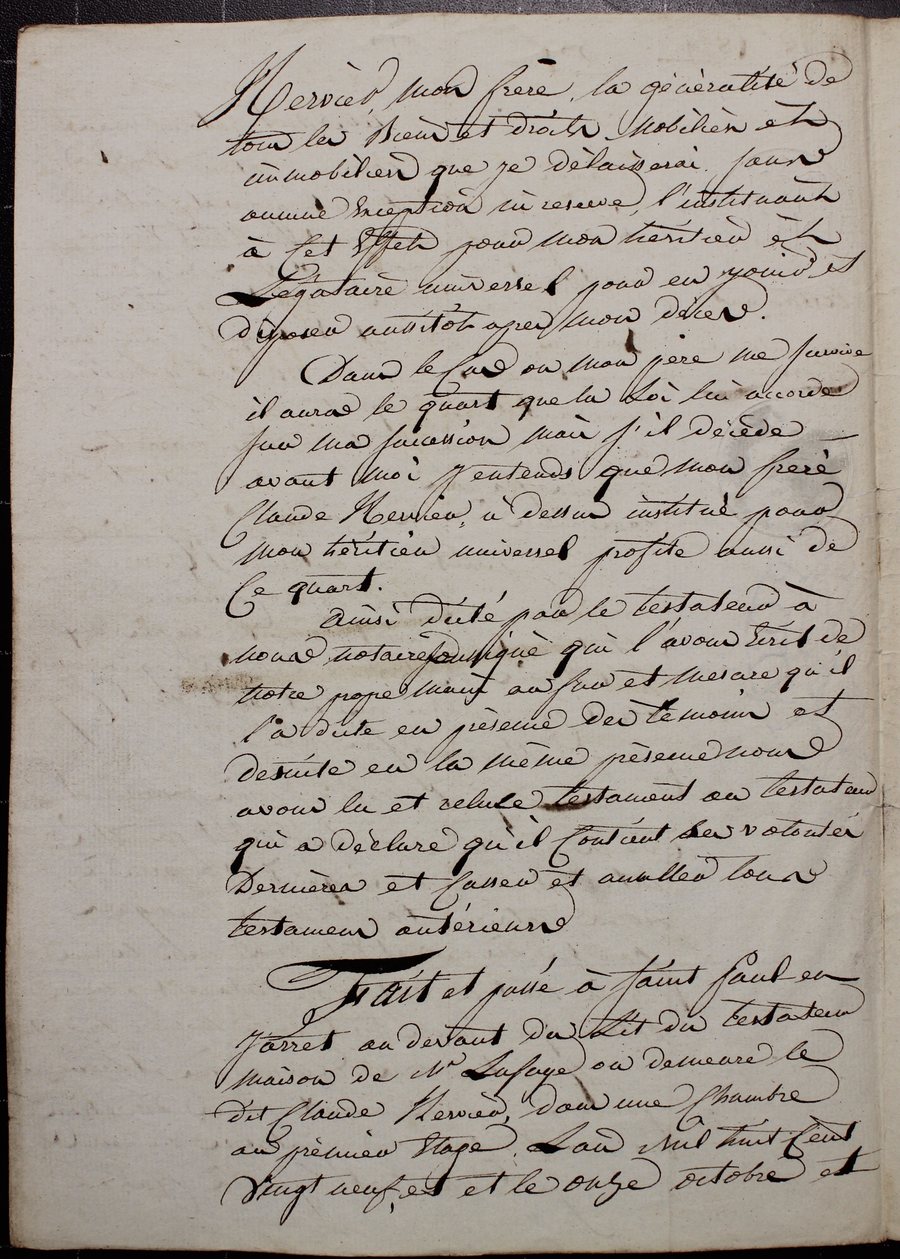 Hervier mon frère, la généralité de
tous les Biens et droits mobiliers et
immobiliers que je délaisserai sans
aucune Exception ni reserve, l'instituant
à Cet Effet pour mon héritier et
Légataire universel pour en jouir et
disposer aussitôt apres mon décès.
Dans le Cas ou mon pere me survive
il aura le quart que la Loi lui accorde
sur ma succession mais s'il décède
avant moi j'entends que mon frere
Claude Hervier, ci dessus institué pour
mon héritier universel profite aussi de
Ce quart.
Ainsi dicté par le testateur à
nous notaire soussigné qui l'avons Ecrit de
notre propre main au fur et mesure qu'il
l'a dicté en présence des témoins et
desuite en la même présence nous
avons lu et relu le testament au testateur
qui a déclaré qu'il Contient ses volontés
Dernières et Casser et annuller tous
testamens antérieurs
Fait et passé à Saint Paul en
Jarret au devant du Lit du testateur
maison de Mr Lafaye ou demeure le
dit Claude Hervier, dans une Chambre
au prémier Etage, L'an Mil huit Cent
Vingt neuf, et et le onze octobre et